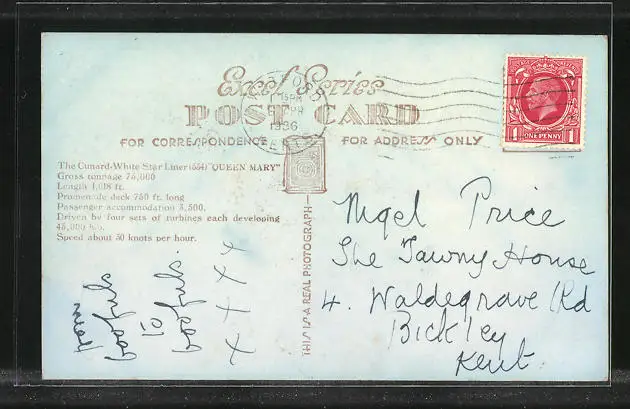 Excel Series
POST CARD
FOR CORRESPONDENCE
FOR ADDRESS ONLY
1936
1 ONE PENNY 1
The Cunard-White Star Liner (534) "QUEEN MARY"
Gross tonnage 75,000
Length 1,018 ft.
Promenade deck 750 ft. long
Passenger accommodation 3,500.
Driven by four sets of turbines each developing
45,000 h.p.
Speed about 30 knots per hour.
THIS IS A REAL PHOTOGRAPH
Nigel Price
The Tawny House
4. Waldegrave Rd
Bickley
Kent.
from
x x x x